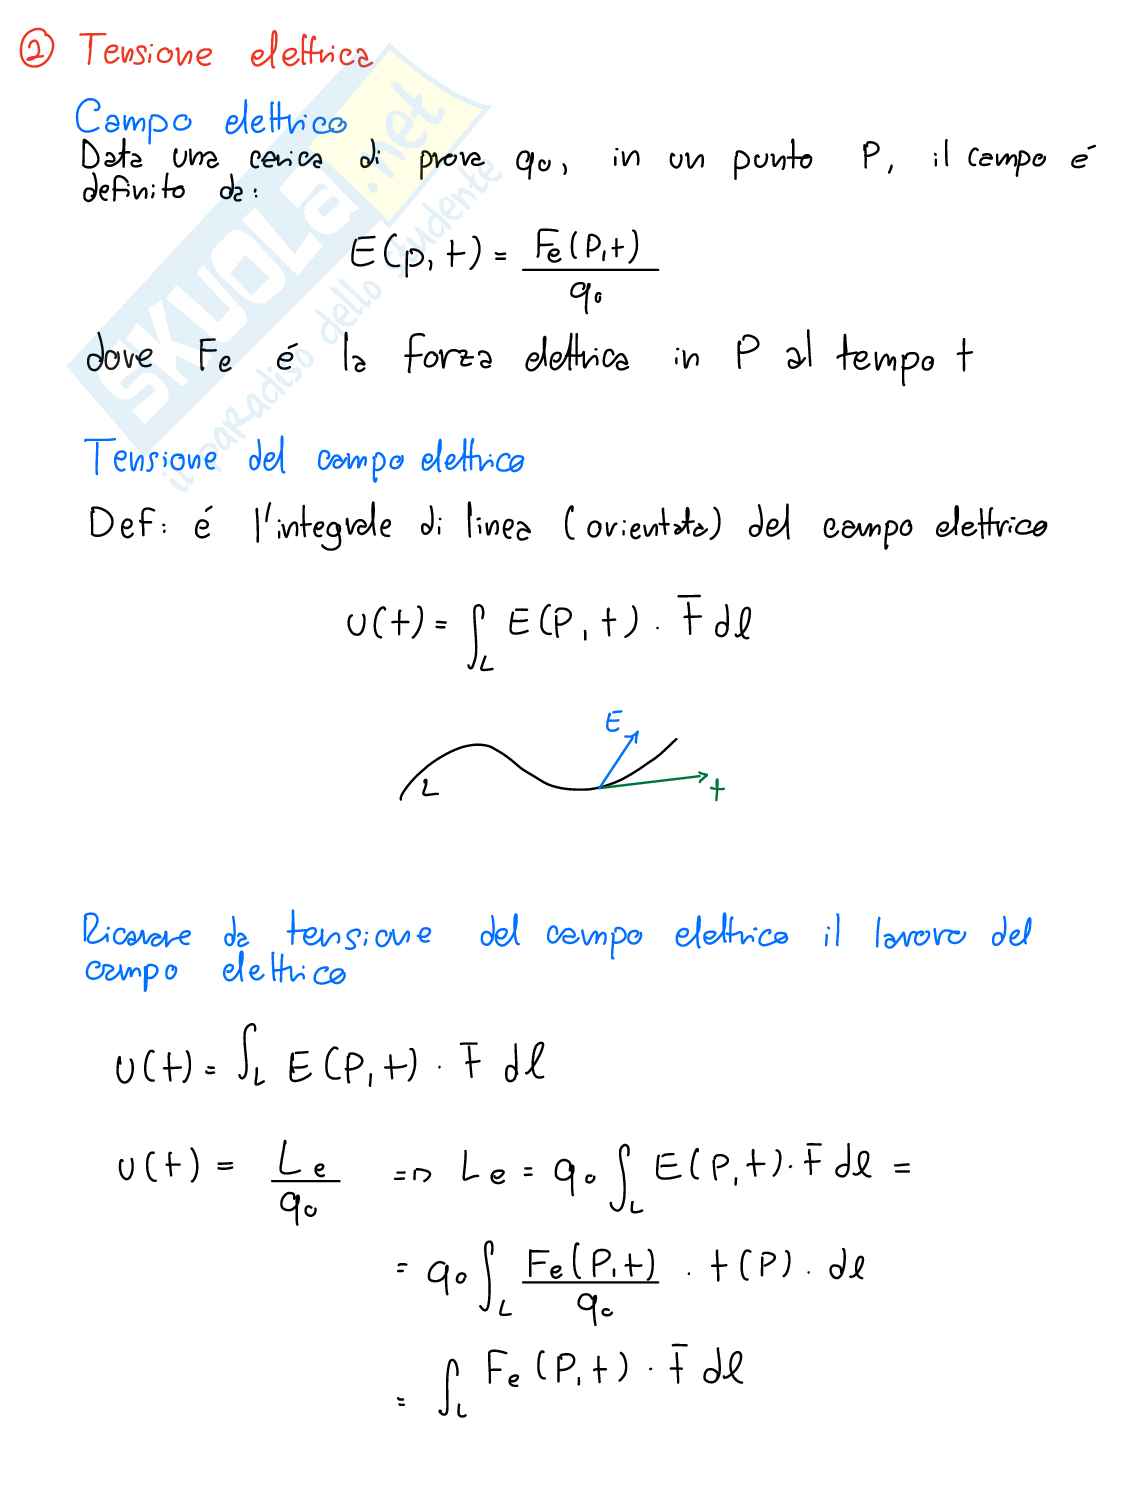 ② Tensione elettrica
Campo elettrico
Data una carica di prova q₀, in un punto P, il campo é
definito da:
E(p,t) = Fe(P,t) / q₀
dove Fe é la forza elettrica in P al tempo t
Tensione del campo elettrico
Def: é l'integrale di linea (orientata) del campo elettrico
U(t) = ∫_L E(P,t) · t̄ dl
E
L
t
Ricavare da tensione del campo elettrico il lavoro del
campo elettrico
U(t) = ∫_L E(P,t) · t̄ dl
U(t) = Le / q₀ => Le = q₀ ∫_L E(P,t) · t̄ dl =
= q₀ ∫_L Fe(P,t) / q₀ · t(P) · dl
= ∫_L Fe(P,t) · t̄ dl
SKUOLA.net
il paradiso dello studente